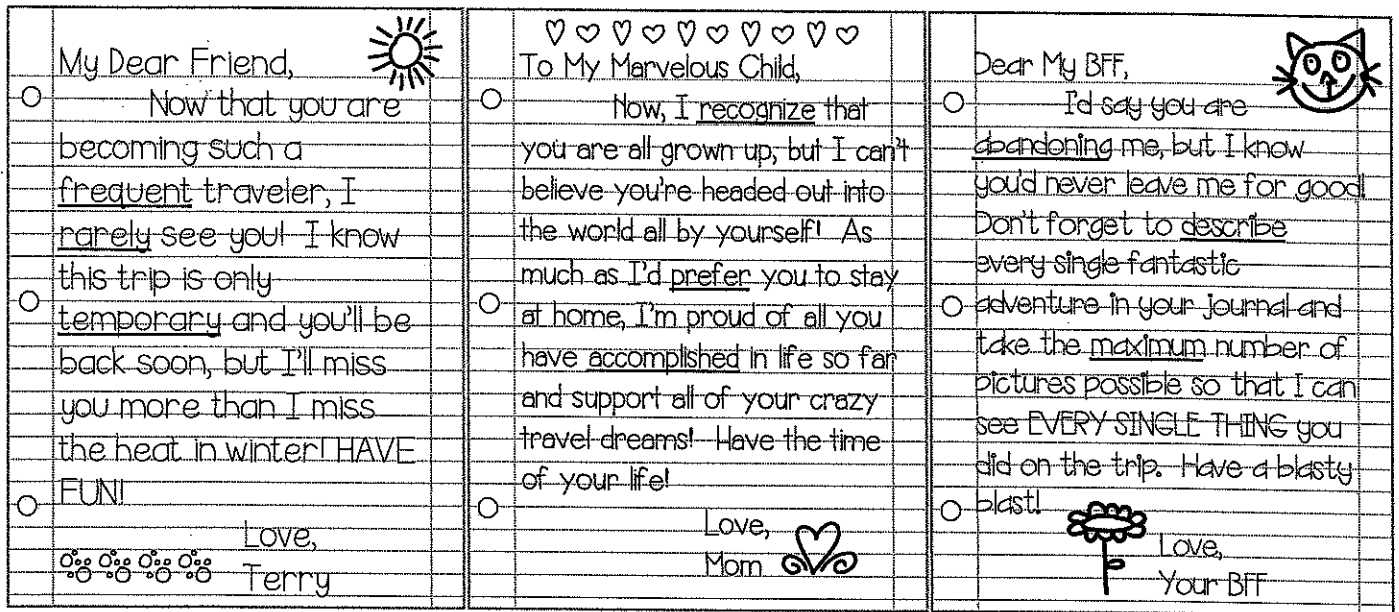 My Dear Friend,
Now that you are
becoming such a
frequent traveler, I
rarely see you! I know
this trip is only
temporary and you'll be
back soon, but I'll miss
you more than I miss
the heat in winter! HAVE
FUN!
Love,
Terry
To My Marvelous Child,
Now, I recognize that
you are all grown up, but I can't
believe you're headed out into
the world all by yourself! As
much as I'd prefer you to stay
at home, I'm proud of all you
have accomplished in life so far
and support all of your crazy
travel dreams! Have the time
of your life!
Love,
Mom
Dear My BFF,
I'd say you are
abandoning me, but I know
you'd never leave me for good!
Don't forget to describe
every single fantastic
adventure in your journal and
take the maximum number of
pictures possible so that I can
see EVERY SINGLE THING you
did on the trip. Have a blasty
blast!
Love,
Your BFF